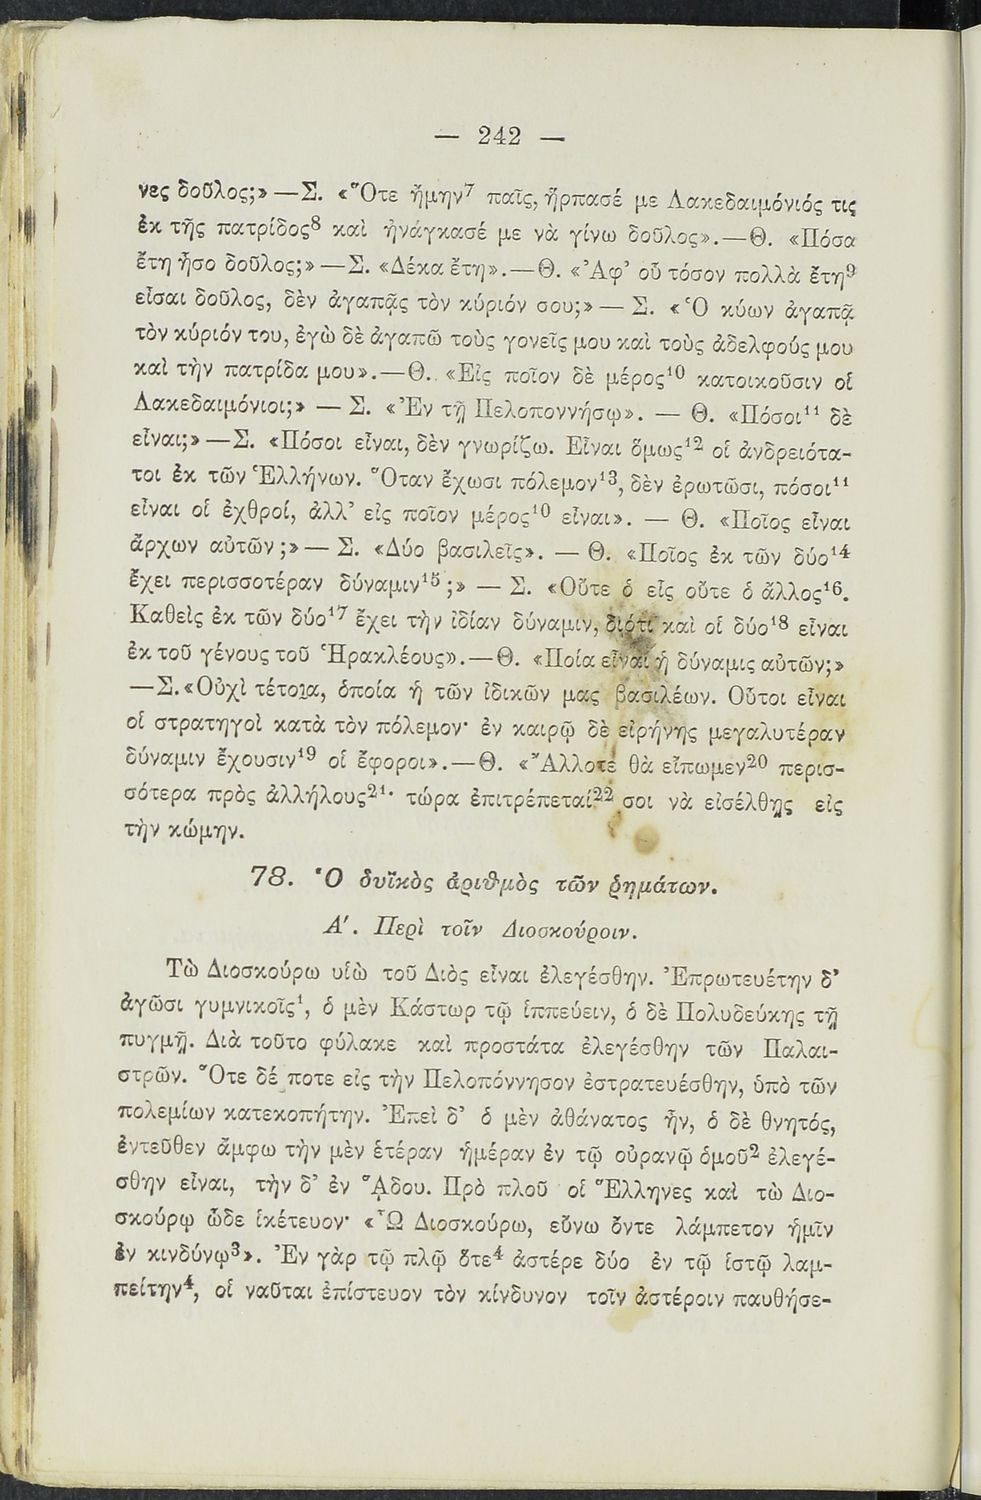 — 242 —
νες δοῦλος;» — Σ. «Ὅτε ἤμην⁷ παῖς, ἥρπασέ με Λακεδαιμόνιός τις
ἐκ τῆς πατρίδος⁸ καὶ ἠνάγκασέ με νὰ γίνω δοῦλος».—Θ. «Πόσα
ἔτη ἦσο δοῦλος;» — Σ. «Δέκα ἔτη».—Θ. «Ἀφ’ οὗ τόσον πολλὰ ἔτη⁹
εἶσαι δοῦλος, δὲν ἀγαπᾷς τὸν κύριόν σου;» — Σ. «Ὁ κύων ἀγαπᾷ
τὸν κύριόν του, ἐγὼ δὲ ἀγαπῶ τοὺς γονεῖς μου καὶ τοὺς ἀδελφούς μου
καὶ τὴν πατρίδα μου».—Θ. «Εἰς ποῖον δὲ μέρος¹⁰ κατοικοῦσιν οἱ
Λακεδαιμόνιοι;» — Σ. «Ἐν τῇ Πελοποννήσῳ». — Θ. «Πόσοι¹¹ δὲ
εἶναι;» — Σ. «Πόσοι εἶναι, δὲν γνωρίζω. Εἶναι ὅμως¹² οἱ ἀνδρειότα-
τοι ἐκ τῶν Ἑλλήνων. Ὅταν ἔχωσι πόλεμον¹³, δὲν ἐρωτῶσι, πόσοι¹¹
εἶναι οἱ ἐχθροί, ἀλλ’ εἰς ποῖον μέρος¹⁰ εἶναι». — Θ. «Ποῖος εἶναι
ἄρχων αὐτῶν;» — Σ. «Δύο βασιλεῖς». — Θ. «Ποῖος ἐκ τῶν δύο¹⁴
ἔχει περισσοτέραν δύναμιν¹⁵;» — Σ. «Οὔτε ὁ εἷς οὔτε ὁ ἄλλος¹⁶.
Καθεὶς ἐκ τῶν δύο¹⁷ ἔχει τὴν ἰδίαν δύναμιν, διότι καὶ οἱ δύο¹⁸ εἶναι
ἐκ τοῦ γένους τοῦ Ἡρακλέους».—Θ. «Ποία εἶναι ἡ δύναμις αὐτῶν;»
—Σ. «Οὐχὶ τέτοια, ὁποία ἡ τῶν ἰδικῶν μας βασιλέων. Οὗτοι εἶναι
οἱ στρατηγοὶ κατὰ τὸν πόλεμον· ἐν καιρῷ δὲ εἰρήνης μεγαλυτέραν
δύναμιν ἔχουσιν¹⁹ οἱ ἔφοροι».—Θ. «Ἄλλοτε θὰ εἴπωμεν²⁰ περισ-
σότερα πρὸς ἀλλήλους²¹· τώρα ἐπιτρέπεταί²² σοι νὰ εἰσέλθῃς εἰς
τὴν κώμην.
78. Ὁ δυϊκὸς ἀριθμὸς τῶν ῥημάτων.
Α′. Περὶ τοῖν Διοσκούροιν.
Τὼ Διοσκούρω υἱὼ τοῦ Διὸς εἶναι ἐλεγέσθην. Ἐπρωτευέτην δ’
ἀγῶσι γυμνικοῖς¹, ὁ μὲν Κάστωρ τῷ ἱππεύειν, ὁ δὲ Πολυδεύκης τῇ
πυγμῇ. Διὰ τοῦτο φύλακε καὶ προστάτα ἐλεγέσθην τῶν Παλαι-
στρῶν. Ὅτε δέ ποτε εἰς τὴν Πελοπόννησον ἐστρατευέσθην, ὑπὸ τῶν
πολεμίων κατεκοπήτην. Ἐπεὶ δ’ ὁ μὲν ἀθάνατος ἦν, ὁ δὲ θνητός,
ἐντεῦθεν ἄμφω τὴν μὲν ἑτέραν ἡμέραν ἐν τῷ οὐρανῷ ὁμοῦ² ἐλεγέ-
σθην εἶναι, τὴν δ’ ἐν ᾍδου. Πρὸ πλοῦ οἱ Ἕλληνες καὶ τὼ Διο-
σκούρῳ ὧδε ἱκέτευον· «Ὦ Διοσκούρω, εὔνω ὄντε λάμπετον ἡμῖν
ἐν κινδύνῳ³». Ἐν γὰρ τῷ πλῷ ὅτε⁴ ἀστέρε δύο ἐν τῷ ἱστῷ λαμ-
πείτην⁴, οἱ ναῦται ἐπίστευον τὸν κίνδυνον τοῖν ἀστέροιν παυθήσε-